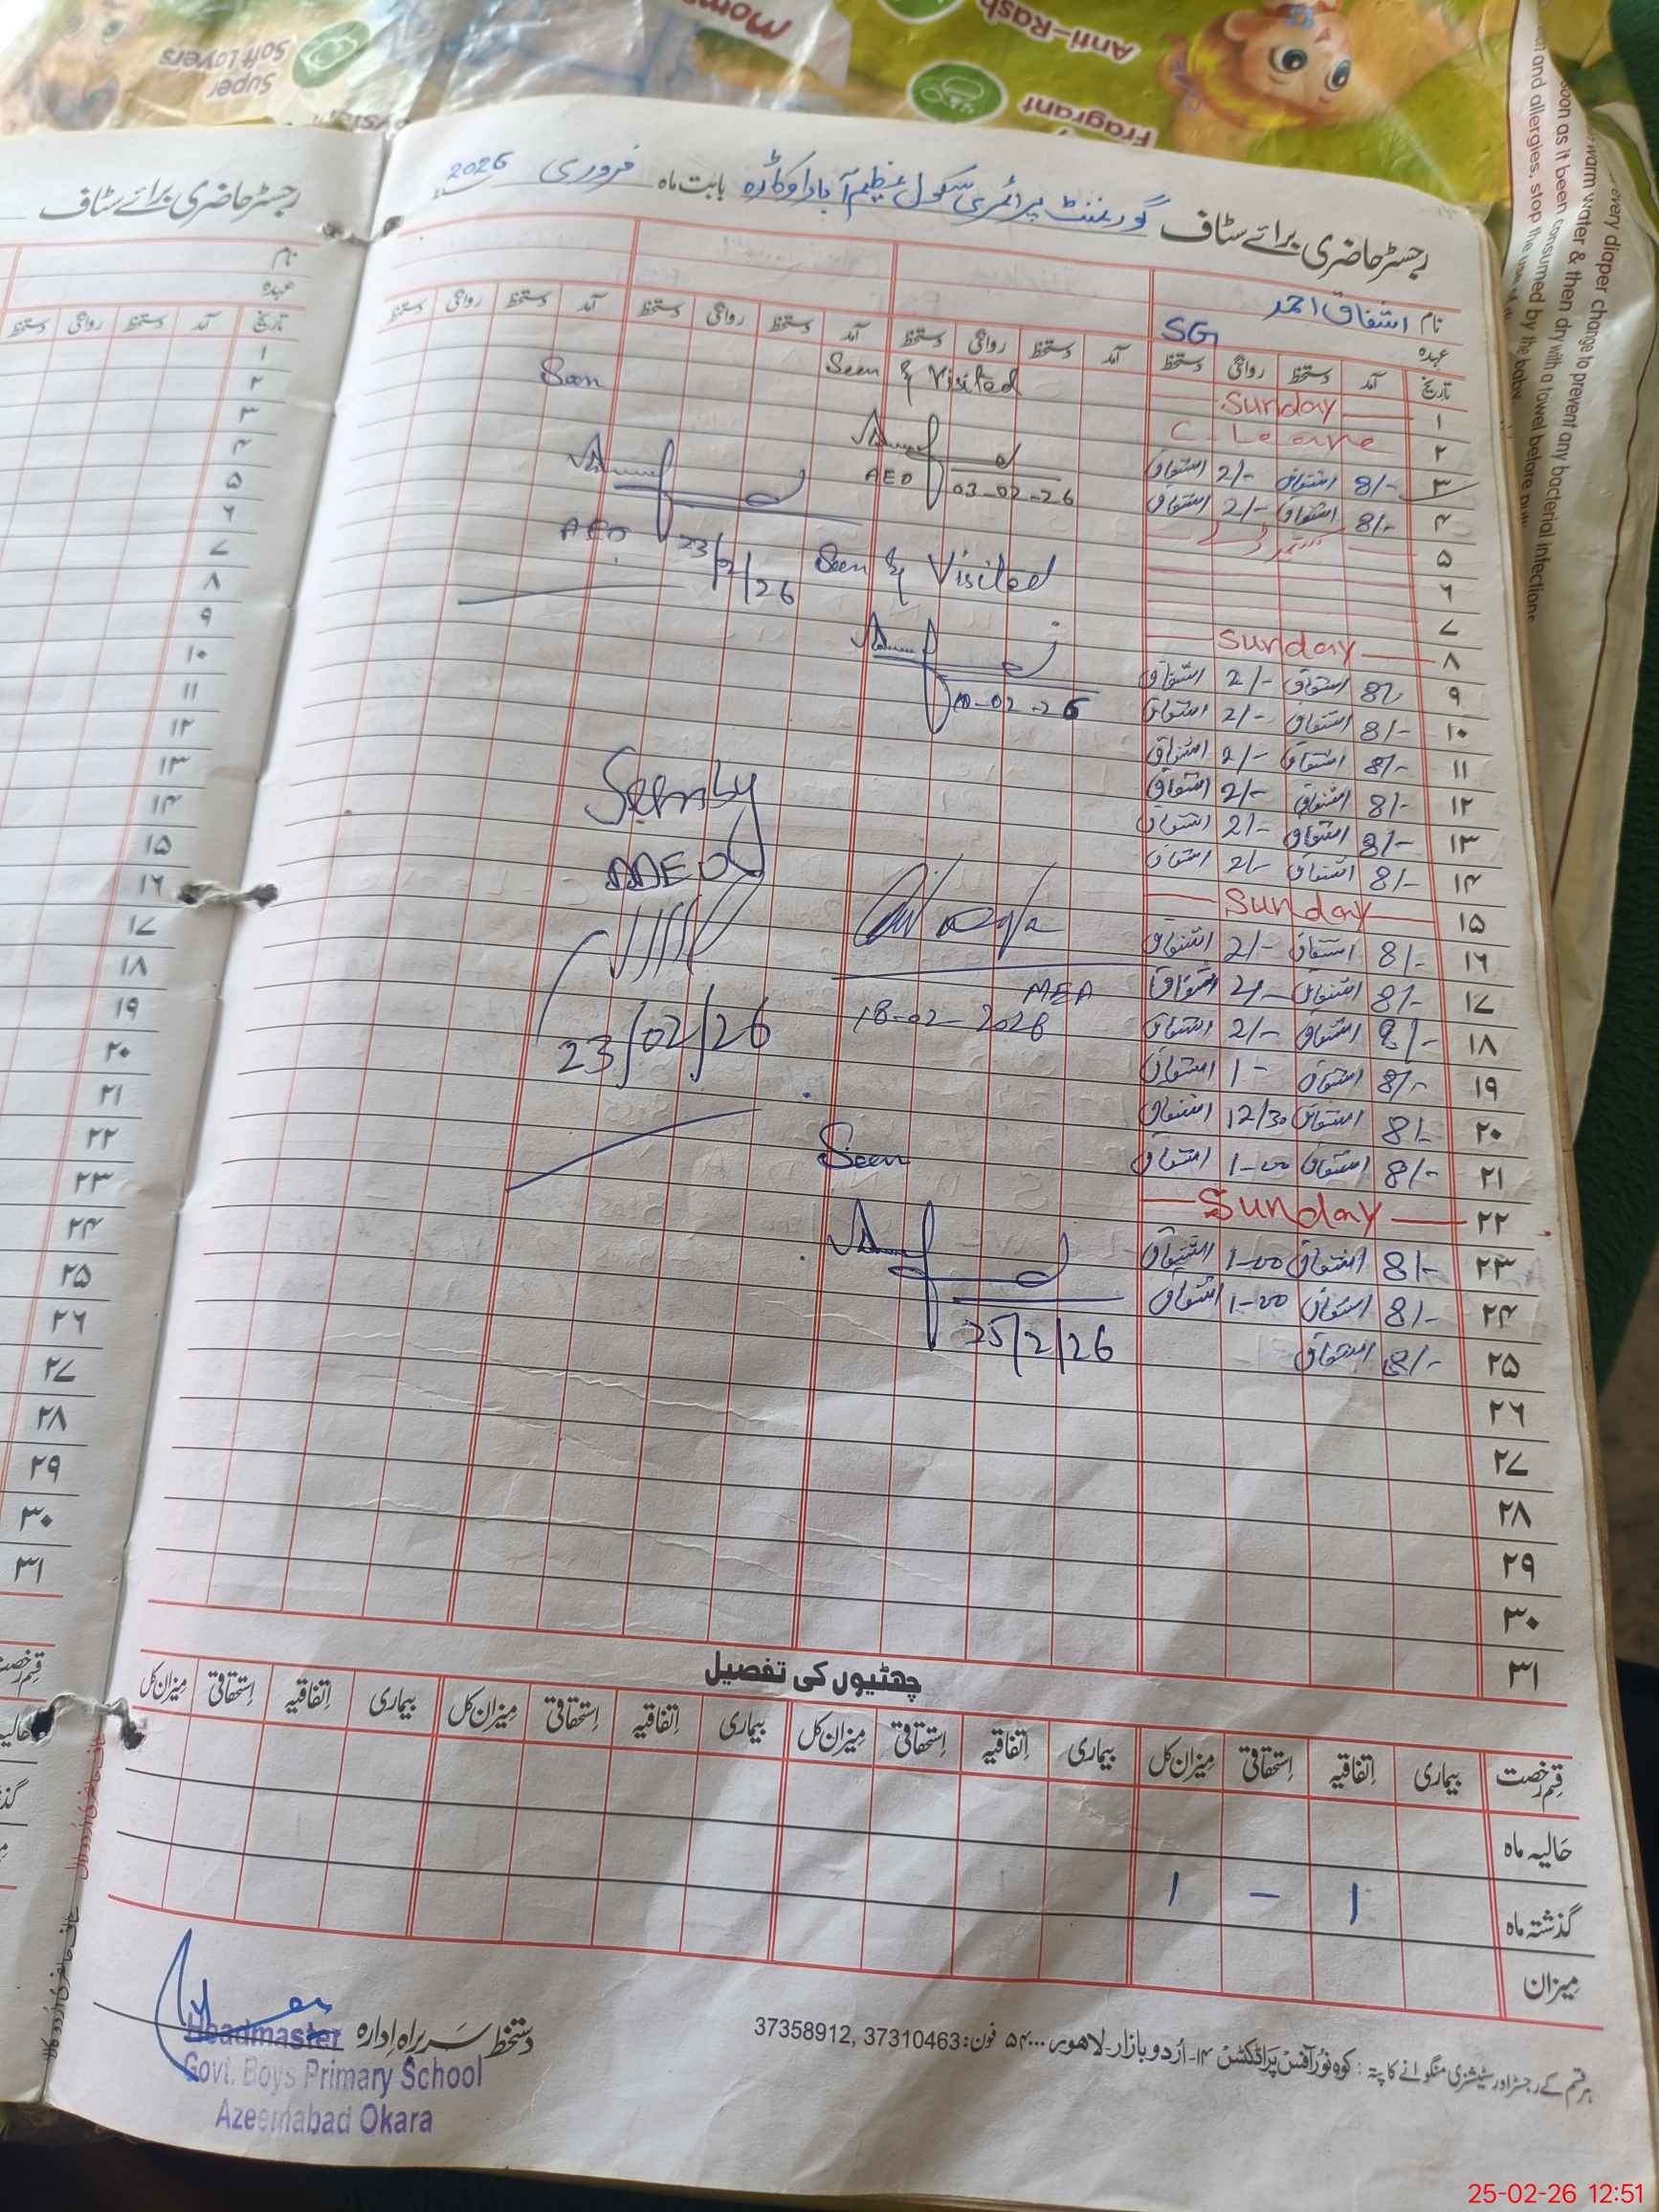 Moms
Anti-Rash
Super
Soft Layers
Fragrant
every diaper change to prevent any bacterial infections
warm water & then dry with a towel before
soon as it been consumed by the baby
and allergies, stop the use
رجسٹر حاضری برائے سٹاف گورنمنٹ پرائمری سکول عظیم آباد اوکاڑہ بابت ماہ فروری 2026
نام اشفاق احمد
عہدہ SG
تاریخ آمد دستخط روانگی دستخط آمد دستخط روانگی دستخط آمد دستخط روانگی دستخط آمد دستخط روانگی دستخط
۱ Sunday
۲ C-Leave
۳ 8/- اشفاق 2/- اشفاق
۴ 8/- اشفاق 2/- اشفاق
۵
۶
۷
۸ Sunday
۹ 8/- اشفاق 2/- اشفاق
۱۰ 8/- اشفاق 2/- اشفاق
۱۱ 8/- اشفاق 2/- اشفاق
۱۲ 8/- اشفاق 2/- اشفاق
۱۳ 8/- اشفاق 2/- اشفاق
۱۴ 8/- اشفاق 2/- اشفاق
۱۵ Sunday
۱۶ 8/- اشفاق 2/- اشفاق
۱۷ 8/- اشفاق 2/- اشفاق
۱۸ 8/- اشفاق 2/- اشفاق
۱۹ 8/- اشفاق 1- اشفاق
۲۰ 8/- اشفاق 12/30 اشفاق
۲۱ 8/- اشفاق 1-00 اشفاق
۲۲ Sunday
۲۳ 8/- اشفاق 1-00 اشفاق
۲۴ 8/- اشفاق 1-00 اشفاق
۲۵ 8/- اشفاق
۲۶
۲۷
۲۸
۲۹
۳۰
۳۱
Seen & Visited
AEO 03-02-26
Seen
AEO 23/2/26
Seen & Visited
10-02-26
Seen by
AAEO
23/02/26
MEA
18-02-2026
Seen
25/2/26
چھٹیوں کی تفصیل
قسم رخصت بیماری اتفاقیہ استحقاقی میزان کل بیماری اتفاقیہ استحقاقی میزان کل بیماری اتفاقیہ استحقاقی میزان کل بیماری اتفاقیہ استحقاقی میزان کل
حالیہ ماہ
گذشتہ ماہ 1 - 1
میزان
دستخط سربراہ ادارہ
Headmaster
Govt. Boys Primary School
Azeemabad Okara
ہر قسم کے رجسٹر اور سٹیشنری منگوانے کا پتہ: کوہ نور آفس پراڈکٹس ۱۴-اردو بازار-لاہور ۵۴۰۰۰ فون: 37310463, 37358912
رجسٹر حاضری برائے سٹاف
نام
عہدہ
تاریخ آمد دستخط روانگی دستخط
۱
۲
۳
۴
۵
۶
۷
۸
۹
۱۰
۱۱
۱۲
۱۳
۱۴
۱۵
۱۶
۱۷
۱۸
۱۹
۲۰
۲۱
۲۲
۲۳
۲۴
۲۵
۲۶
۲۷
۲۸
۲۹
۳۰
۳۱
25-02-26 12:51